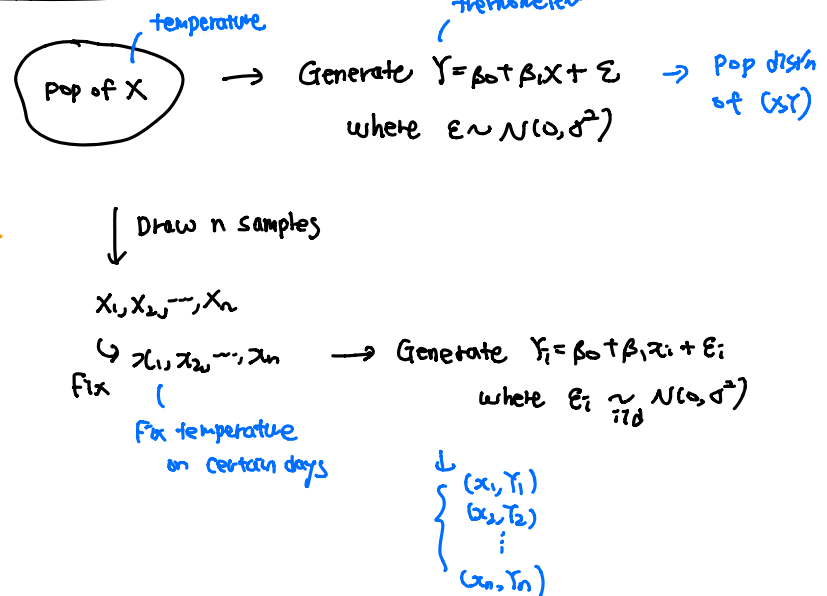 temperature
thermometer
Pop of X → Generate Y = β₀ + β₁X + ε → Pop dist'n
where ε ~ N(0, σ²) of (X,Y)
↓ Draw n samples
X₁, X₂, ..., Xₙ
↪ x₁, x₂, ..., xₙ → Generate Yᵢ = β₀ + β₁xᵢ + εᵢ
Fix
where εᵢ ~ N(0, σ²)
iid
Fix temperature
on certain days
↓
(x₁, Y₁)
(x₂, Y₂)
⋮
(xₙ, Yₙ)